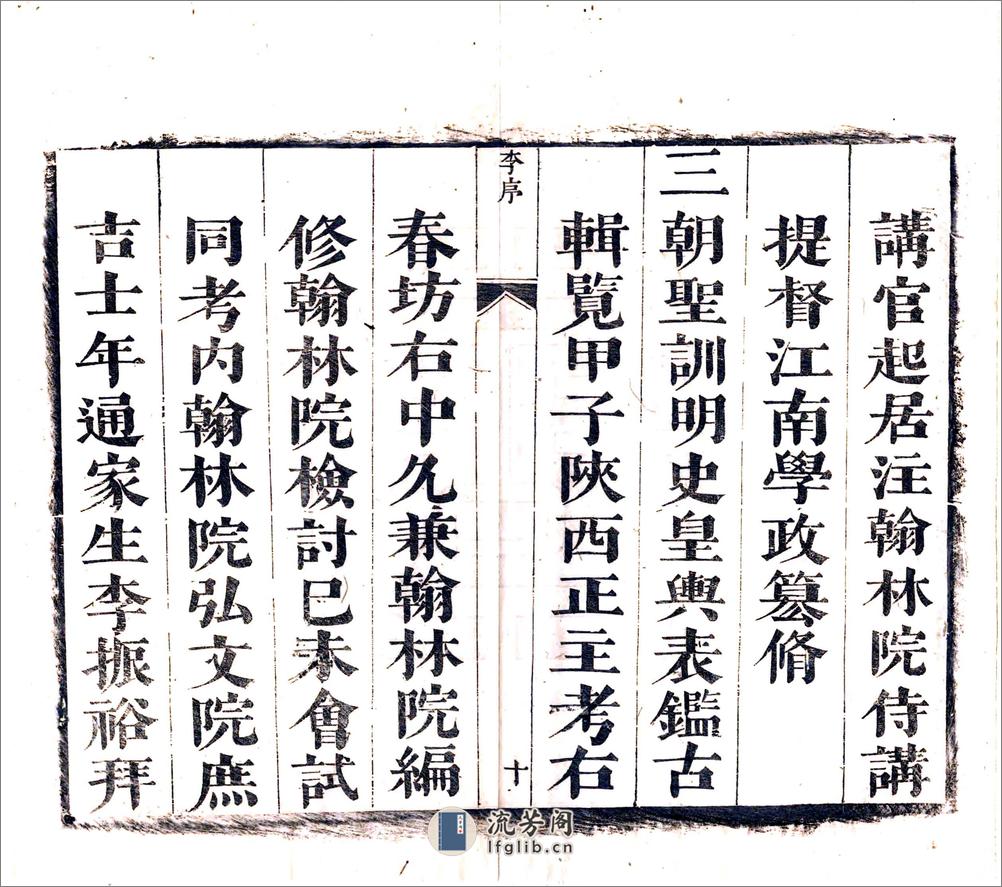 講官起居注翰林院侍講
提督江南學政篡脩
三朝聖訓明史皇輿表鑑古
輯覽甲子陝西正主考右
李序
十
春坊右中允兼翰林院編
修翰林院檢討已未會試
同考内翰林院弘文院庶
吉士年通家生李振裕拜
流芳阁
lfglib.cn